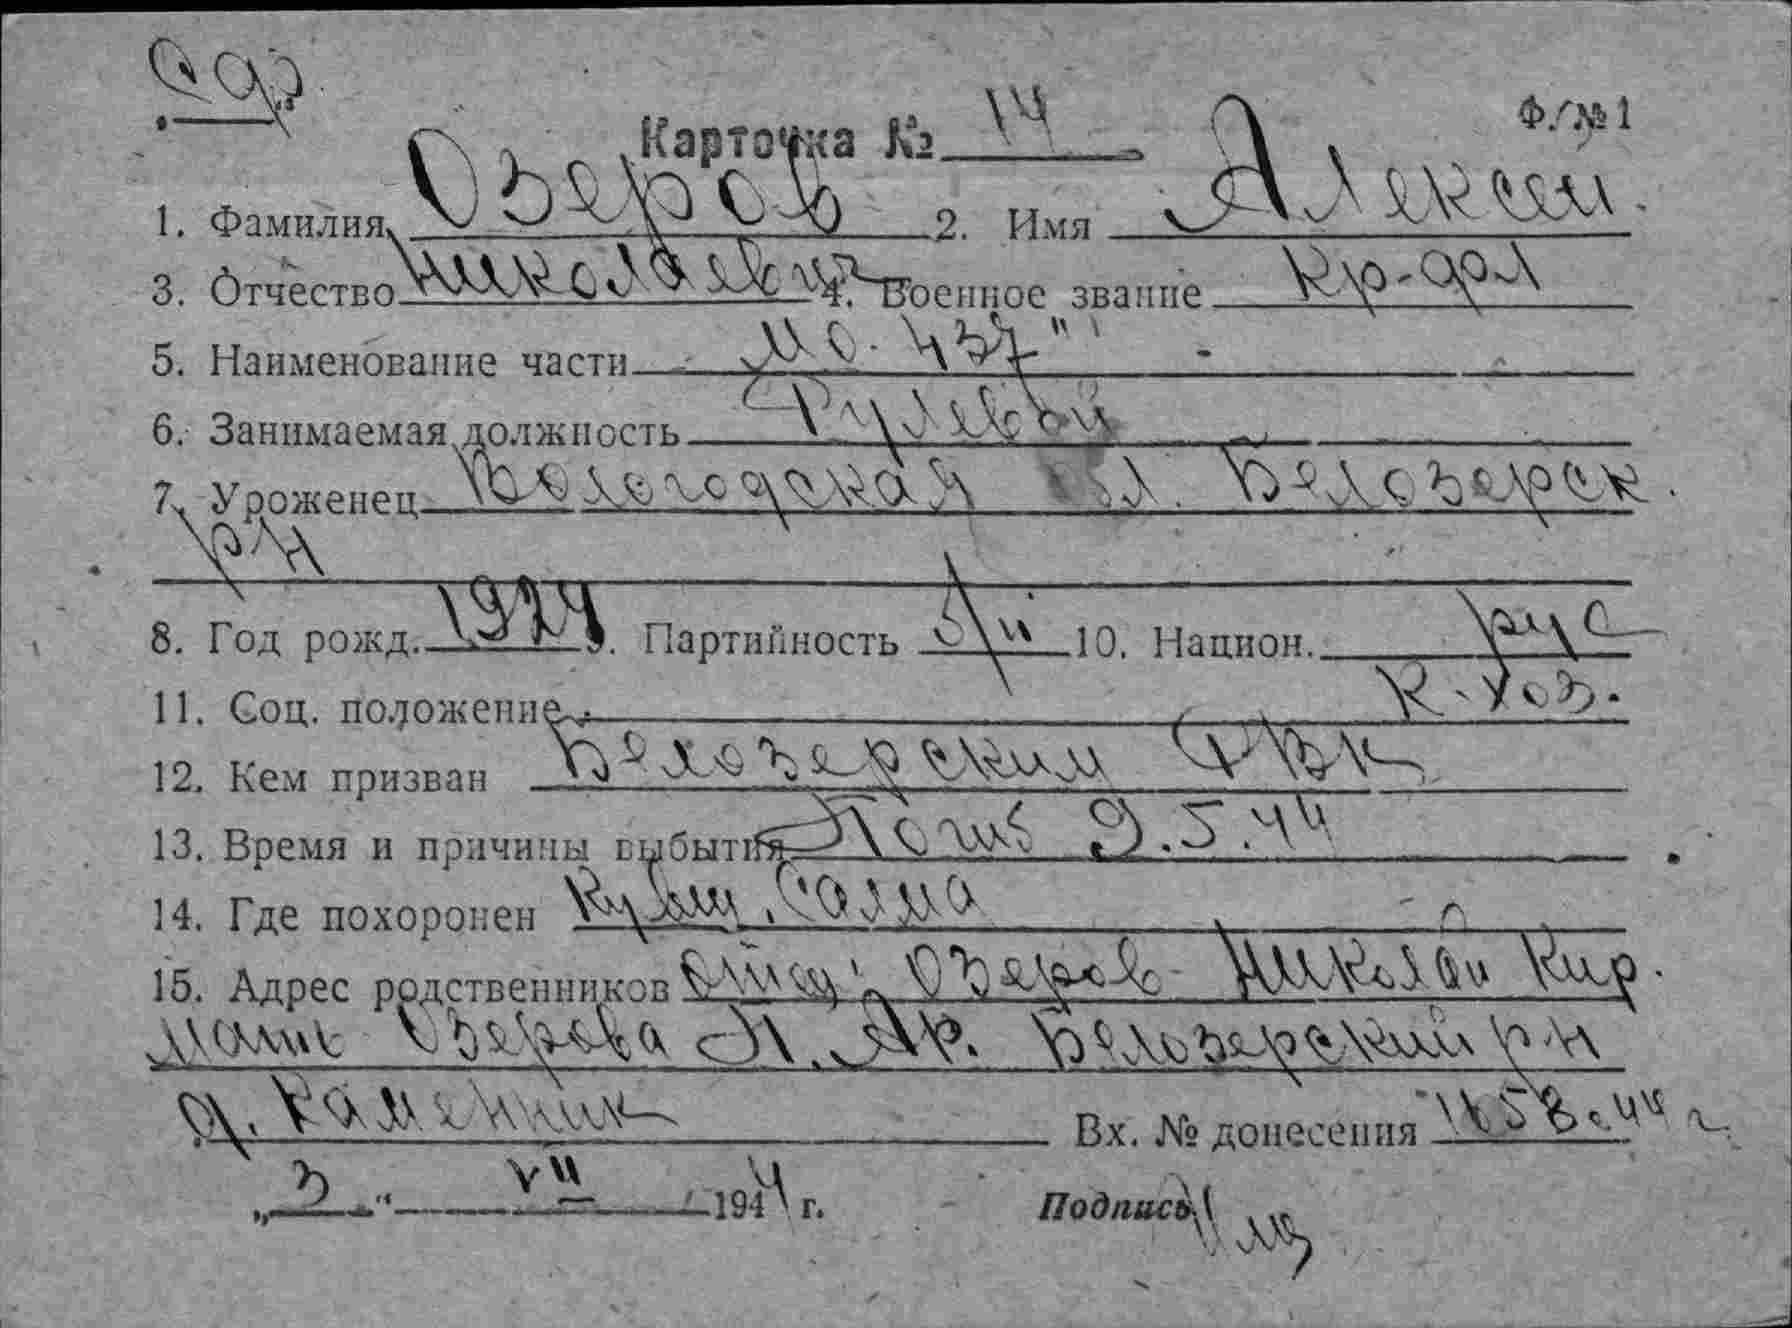 Сдр
Карточка № 14 Ф. №1
1. Фамилия Озеров 2. Имя Алексей
3. Отчество Николаевич 4. Военное звание кр-фл
5. Наименование части МО-437"
6. Занимаемая должность Рулевой
7. Уроженец Вологодская обл. Белозерск.
р-н
8. Год рожд. 1924 9. Партийность б/п 10. Национ. рус
11. Соц. положение к-хоз.
12. Кем призван Белозерским РВК
13. Время и причины выбытия Погиб 9.5.44
14. Где похоронен Кувш. Салма
15. Адрес родственников отец: Озеров Николай Кир.
мать Озерова П. Яр. Белозерский р-н
д. Каменник Вх. № донесения 1658с.44 г.
„3" VII 1944 г. Подпись